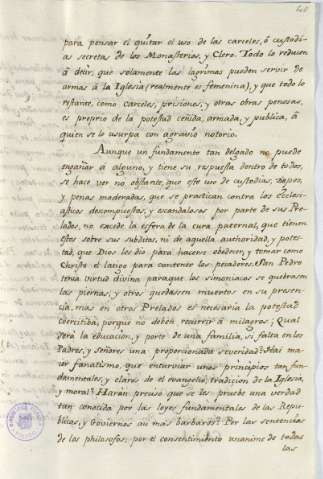 para pensar el quitar el uso de las carceles, ó custodi-
as secretas de los Monasterios, y Clero. Todo lo reducen
á decir, que solamente las lagrimas pueden servir de
armas á la Iglesia (realmente es femenina), y que todo lo
restante, como carceles, prisiones, y otras obras penosas,
es proprio de la potestad ceñida, armada, y publica, á
quien se lo usurpa con agravio notorio.
Aunque un fundamento tan delgado no puede
engañar á alguno, y tiene su respuesta dentro de todos,
se hace ver no obstante, que este uso de custodias,
y penas moderadas, que se practican contra los Eclesi-
asticos decompuestos, y escandalosos por parte de sus Pre-
lados, no excede la esfera de la cura paternal, que tienen
estos sobre sus subditos, ni de aquella authoridad, y potes-
tad, que Dios les dio para hacerse obedecer, y tomar como
Christo el latigo para contener los pecadores. San Pedro
tenia virtud divina para que los simoniacos se quebrasen
las piernas, y otros quedassen muertos en su presen-
cia, mas en otros Prelados es necesaria la potestad
coercitiva, porque no deben recurrir á milagros; Qual
será la educacion, y porte de una familia, si falta en los
Padres, y señores una proporcionada severidad? Hai ma-
ior fanatismo, que enturviar unos principios tan fun-
damentales, y claros de el evangelio, tradicion de la Iglesia,
y moral? Harán preciso que se les pruebe una verdad
tan conocida por las leyes fundamentales de las Repu-
blicas, y Goviernos aú mas barbaros? Por las sentencias
de los philosofos; por el consentimiento unanime de todas
las